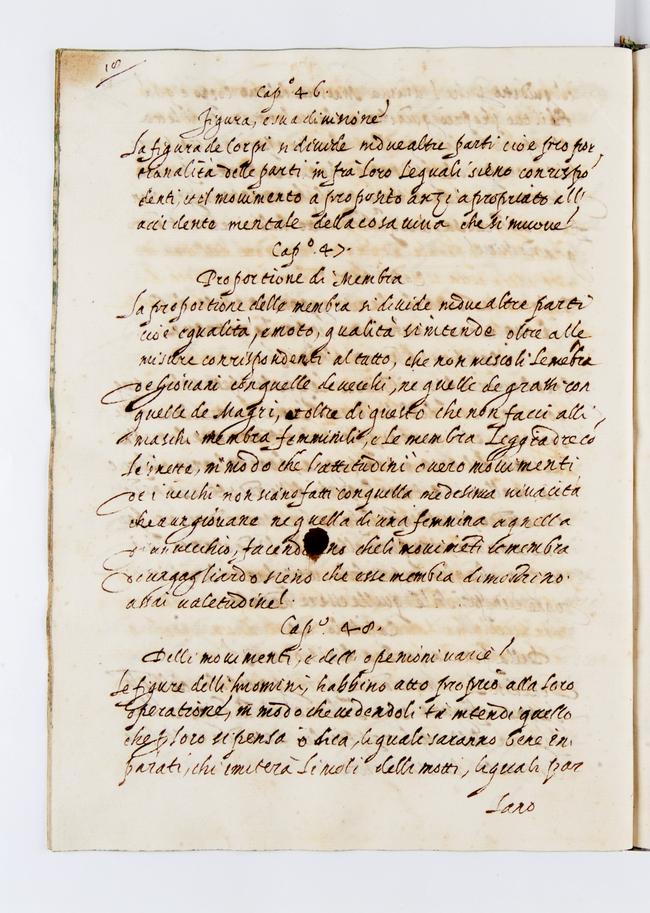 18
Cap.º 46.
figura, e sua divisione
La figura de Corpi si divide in due altre parti cioè propor
tionalità delle parti in frà loro le quali sieno conrispo
denti, et il movimento a proposito anzi apropriato all'
accidente mentale della cosa viva che si muove
Cap.º 47.
Proportione di Membra
La proportione delle membra si divide in due altre parti
cioè equalità, e moto, qualità s'intende oltre alle
misure conrispondenti al tutto, che non mescoli le mebra
de Giovani con quelle de vecchi, ne quelle de grassi con
quelle de Magri, et oltre di questo che non facci alli
maschi membra femminili, e le membra leggiadre co
le inette, in modo che l'attitudini overo movimenti
de i vecchi non siano fatti con quella medesima vivacità
che a un giovane ne quella di una femmina a quella
d'un vecchio, facendo che li movimeti le membra
d'un gagliardo sieno che esse membra dimostrino
assai valetudine.
Cap.º 48.
Delli movimenti, e dell'openioni varie
Le figure delli huomini, habbino atto proprio alla loro
operatione, in modo che vedendoli tu intendi quello
che p loro si pensa o dica, le quali saranno bene im
parati, chi imiterà li moti delli motti, le quali par
lano